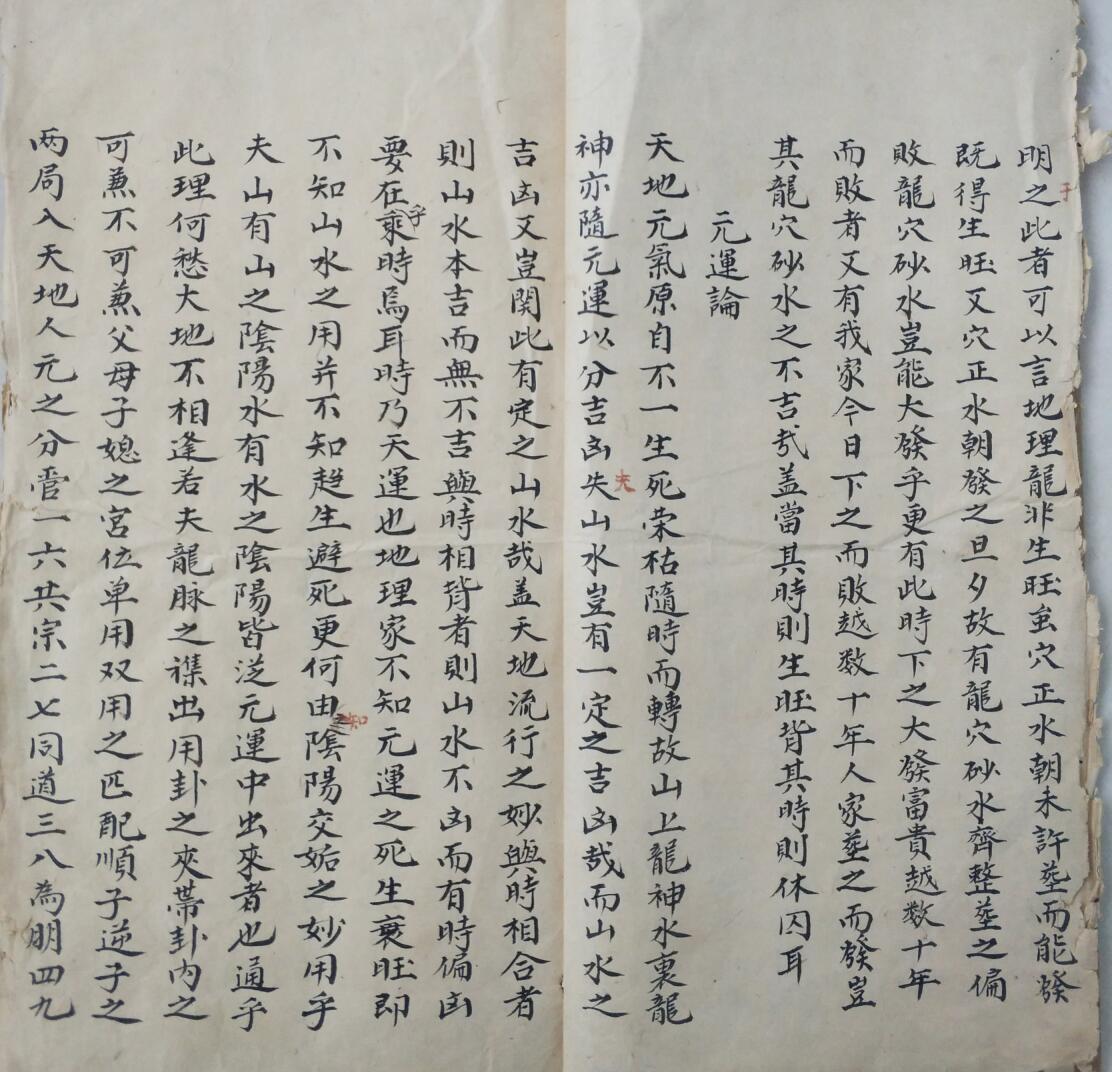 明之此者可以言地理龍非生旺虽穴正水朝未許塟而能發
于
既得生旺又穴正水朝發之旦夕故有龍穴砂水齊整塟之偏
敗龍穴砂水豈能大發乎更有此時下之大發富貴越数十年
而敗者又有我家今日下之而敗越数十年人家塟之而發豈
其龍穴砂水之不吉㢤盖當其時則生旺背其時則休囚耳
元運論
天地元氣原自不一生死荣枯隨時而轉故山上龍神水裏龍
神亦隨元運以分吉凶失山水豈有一定之吉凶哉而山水之
夫
吉凶又豈関此有定之山水哉盖天地流行之妙與時相合者
則山水本吉而無不吉與時相背者則山水不凶而有時偏凶
要在乘乎時焉耳時乃天運也地理家不知元運之死生衰旺即
不知山水之用并不知趋生避死更何由陰陽交姤之妙用乎
知
夫山有山之陰陽水有水之陰陽皆泛元運中出來者也通乎
此理何愁大地不相逢若夫龍脉之襍出用卦之夾帶卦内之
可兼不可兼父母子媳之宮位单用双用之匹配順子逆子之
两局入天地人元之分管一六共宗二七同道三八為朋四九